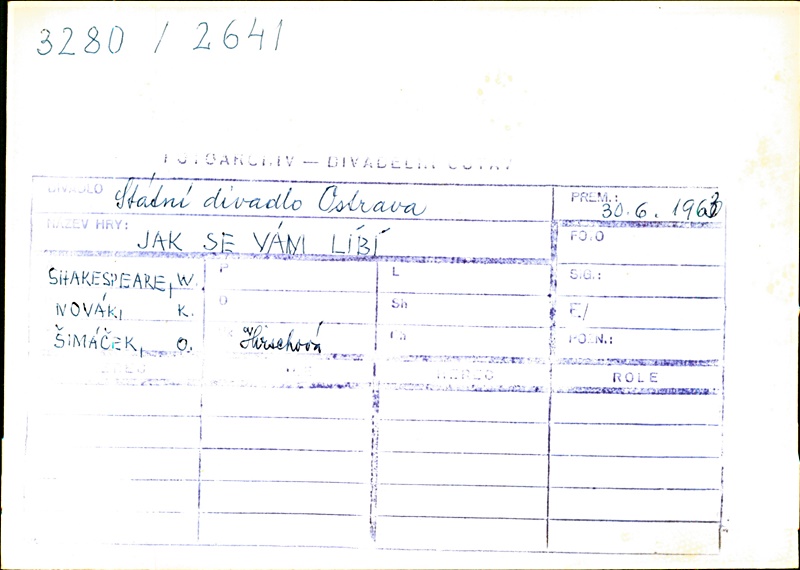 3280 / 2641
FOTOARCHIV — DIVADELNÍ ÚSTAV
DIVADLO Státní divadlo Ostrava PREM.: 30. 6. 1963
NÁZEV HRY: JAK SE VÁM LÍBÍ FOTO
SHAKESPEARE, W. P L S.G.:
NOVÁK, K. O Sh F./
ŠIMÁČEK, O. Hirschová POZN.:
ROLE